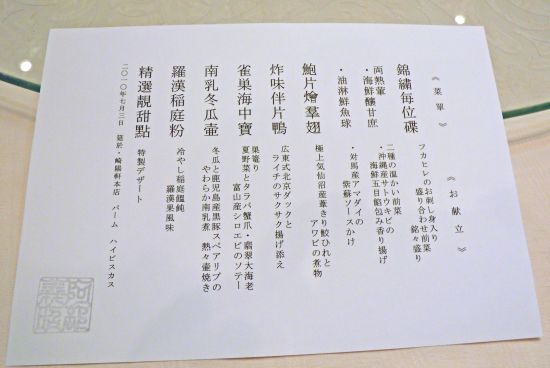 《菜單》
《お献立》
錦繡毎位碟
フカヒレのお刺し身入り
盛り合わせ前菜
銘々盛り
両熱葷
二種の温かい前菜
・海鮮釀甘庶
・沖縄産サトウキビの
海鮮五目餡包み香り揚げ
・油淋鮮魚球
・対馬産アマダイの
紫蘇ソースかけ
鮑片燴羣翅
極上気仙沼産葦きり鮫ひれと
アワビの煮物
炸味伴片鴨
広東式北京ダックと
ライチのサクサク揚げ添え
雀巣海中寶
巣篭り
夏野菜とタラバ蟹爪・翡翠大海老
富山産シロエビのソテー
南乳冬瓜壷
冬瓜と鹿児島産黒豚スペアリブの
やわらか南乳煮 熱々壷焼き
羅漢稲庭粉
冷やし稲庭饂飩
羅漢果風味
精選靚甜點
特製デザート
二〇一〇年七月三日 筵於・崎陽軒本店 バーム ハイビスカス